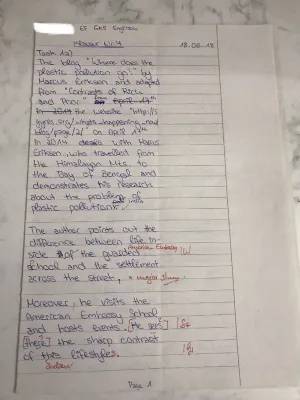 EF GKS Englisch
18.06.18
Task 1a)
The blog "Where does the
plastic pollution go?" by
Marcus Eriksen and adapted
from "Contrasts of Rich
and Poor"
In 2014 the website "http://5
gyres.org/whats_happening_now/
blog/page/2/" on April 17th
In 2014 deals with Marcus
Eriksen, who travelled from
the Himalayan Mts. to
the Bay of Bengal and
demonstrates his research
about the problem of
plastic pollution in India
The author points out the
difference between life in-
side of the guarded American Embassy
school and the settlement
across the street,
Moreover, he visits the
American Embassy School
and hosts events. [He sees]
[there] the sharp contrast
of this lifestyles.
Page 1